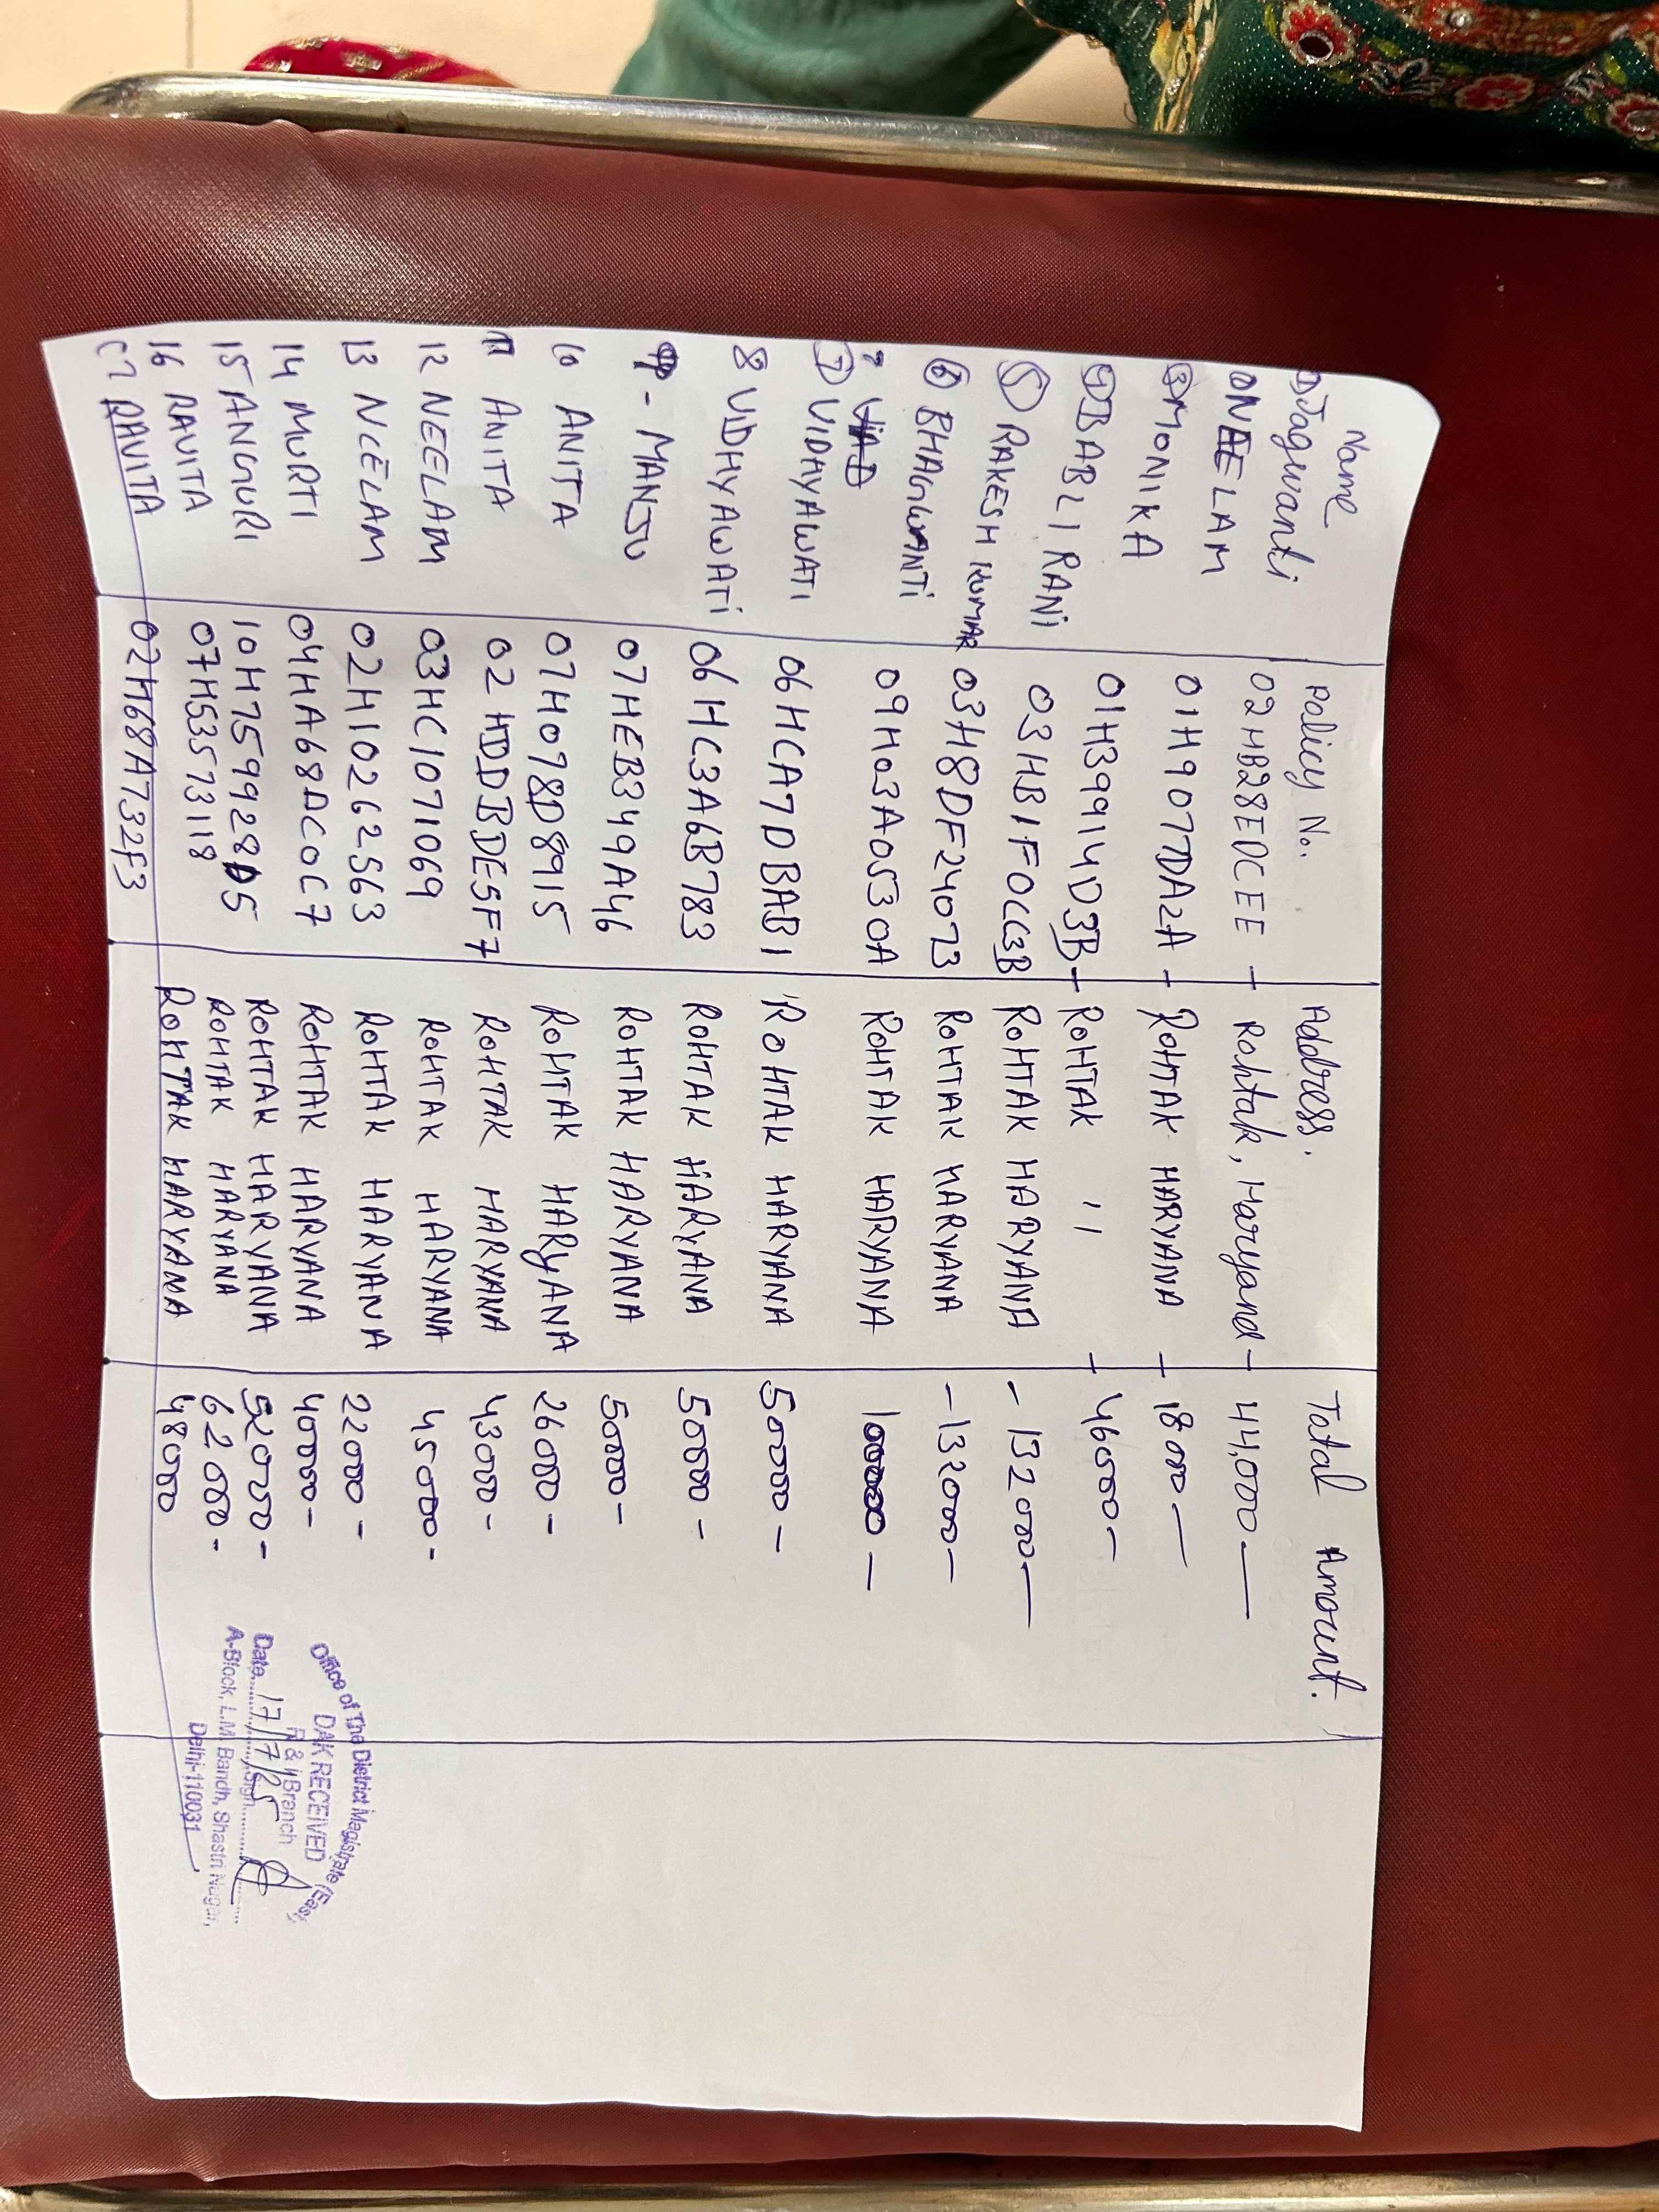 Name Policy No. Address. Total Amount.
① Jagwanti 02HB28EDCEE - Rohtak, Haryana - 44,000 —
② NEELAM 01H907TDA2A - ROHTAK HARYANA - 18000 —
③ MONIKA 01H39914D3B - ROHTAK '' - 46000 -
④ BABLI RANI 03HB1F0CC3B ROHTAK HARYANA - 132000 —
⑤ RAKESH KUMAR 03H8DF24073 ROHTAK HARYANA - 132000 -
⑥ BHAGWANTI 09H03A0530A ROHTAK HARYANA 100000 -
⑦ VIDHYAWATI 06HCA7DBAB1 ROHTAK HARYANA 50000 -
8 VDHYAWATI 06HC3A6B783 ROHTAK HARYANA 50000 -
9 - MANJU 07HEB349A46 ROHTAK HARYANA 50000 -
10 ANITA 07H078D8915 ROHTAK HARYANA 26000 -
11 ANITA 02HDDBDE5F7 ROHTAK HARYANA 43000 -
12 NEELAM 03HC1071069 ROHTAK HARYANA 45000 -
13 NEELAM 02H10262563 ROHTAK HARYANA 22000 -
14 MURTI 04HA68DC0C7 ROHTAK HARYANA 40000 -
15 ANGURI 10H759928D5 ROHTAK HARYANA 52000 -
16 RAVITA 07H53573118 ROHTAK HARYANA 62000 -
17 RAVITA 02H68A732F3 ROHTAK HARYANA 48000
Office of The District Magistrate (East)
DAK RECEIVED
R & I Branch
Date 17/7/25 Sign
A-Block, L.M Bandh, Shastri Nagar,
Delhi-110031